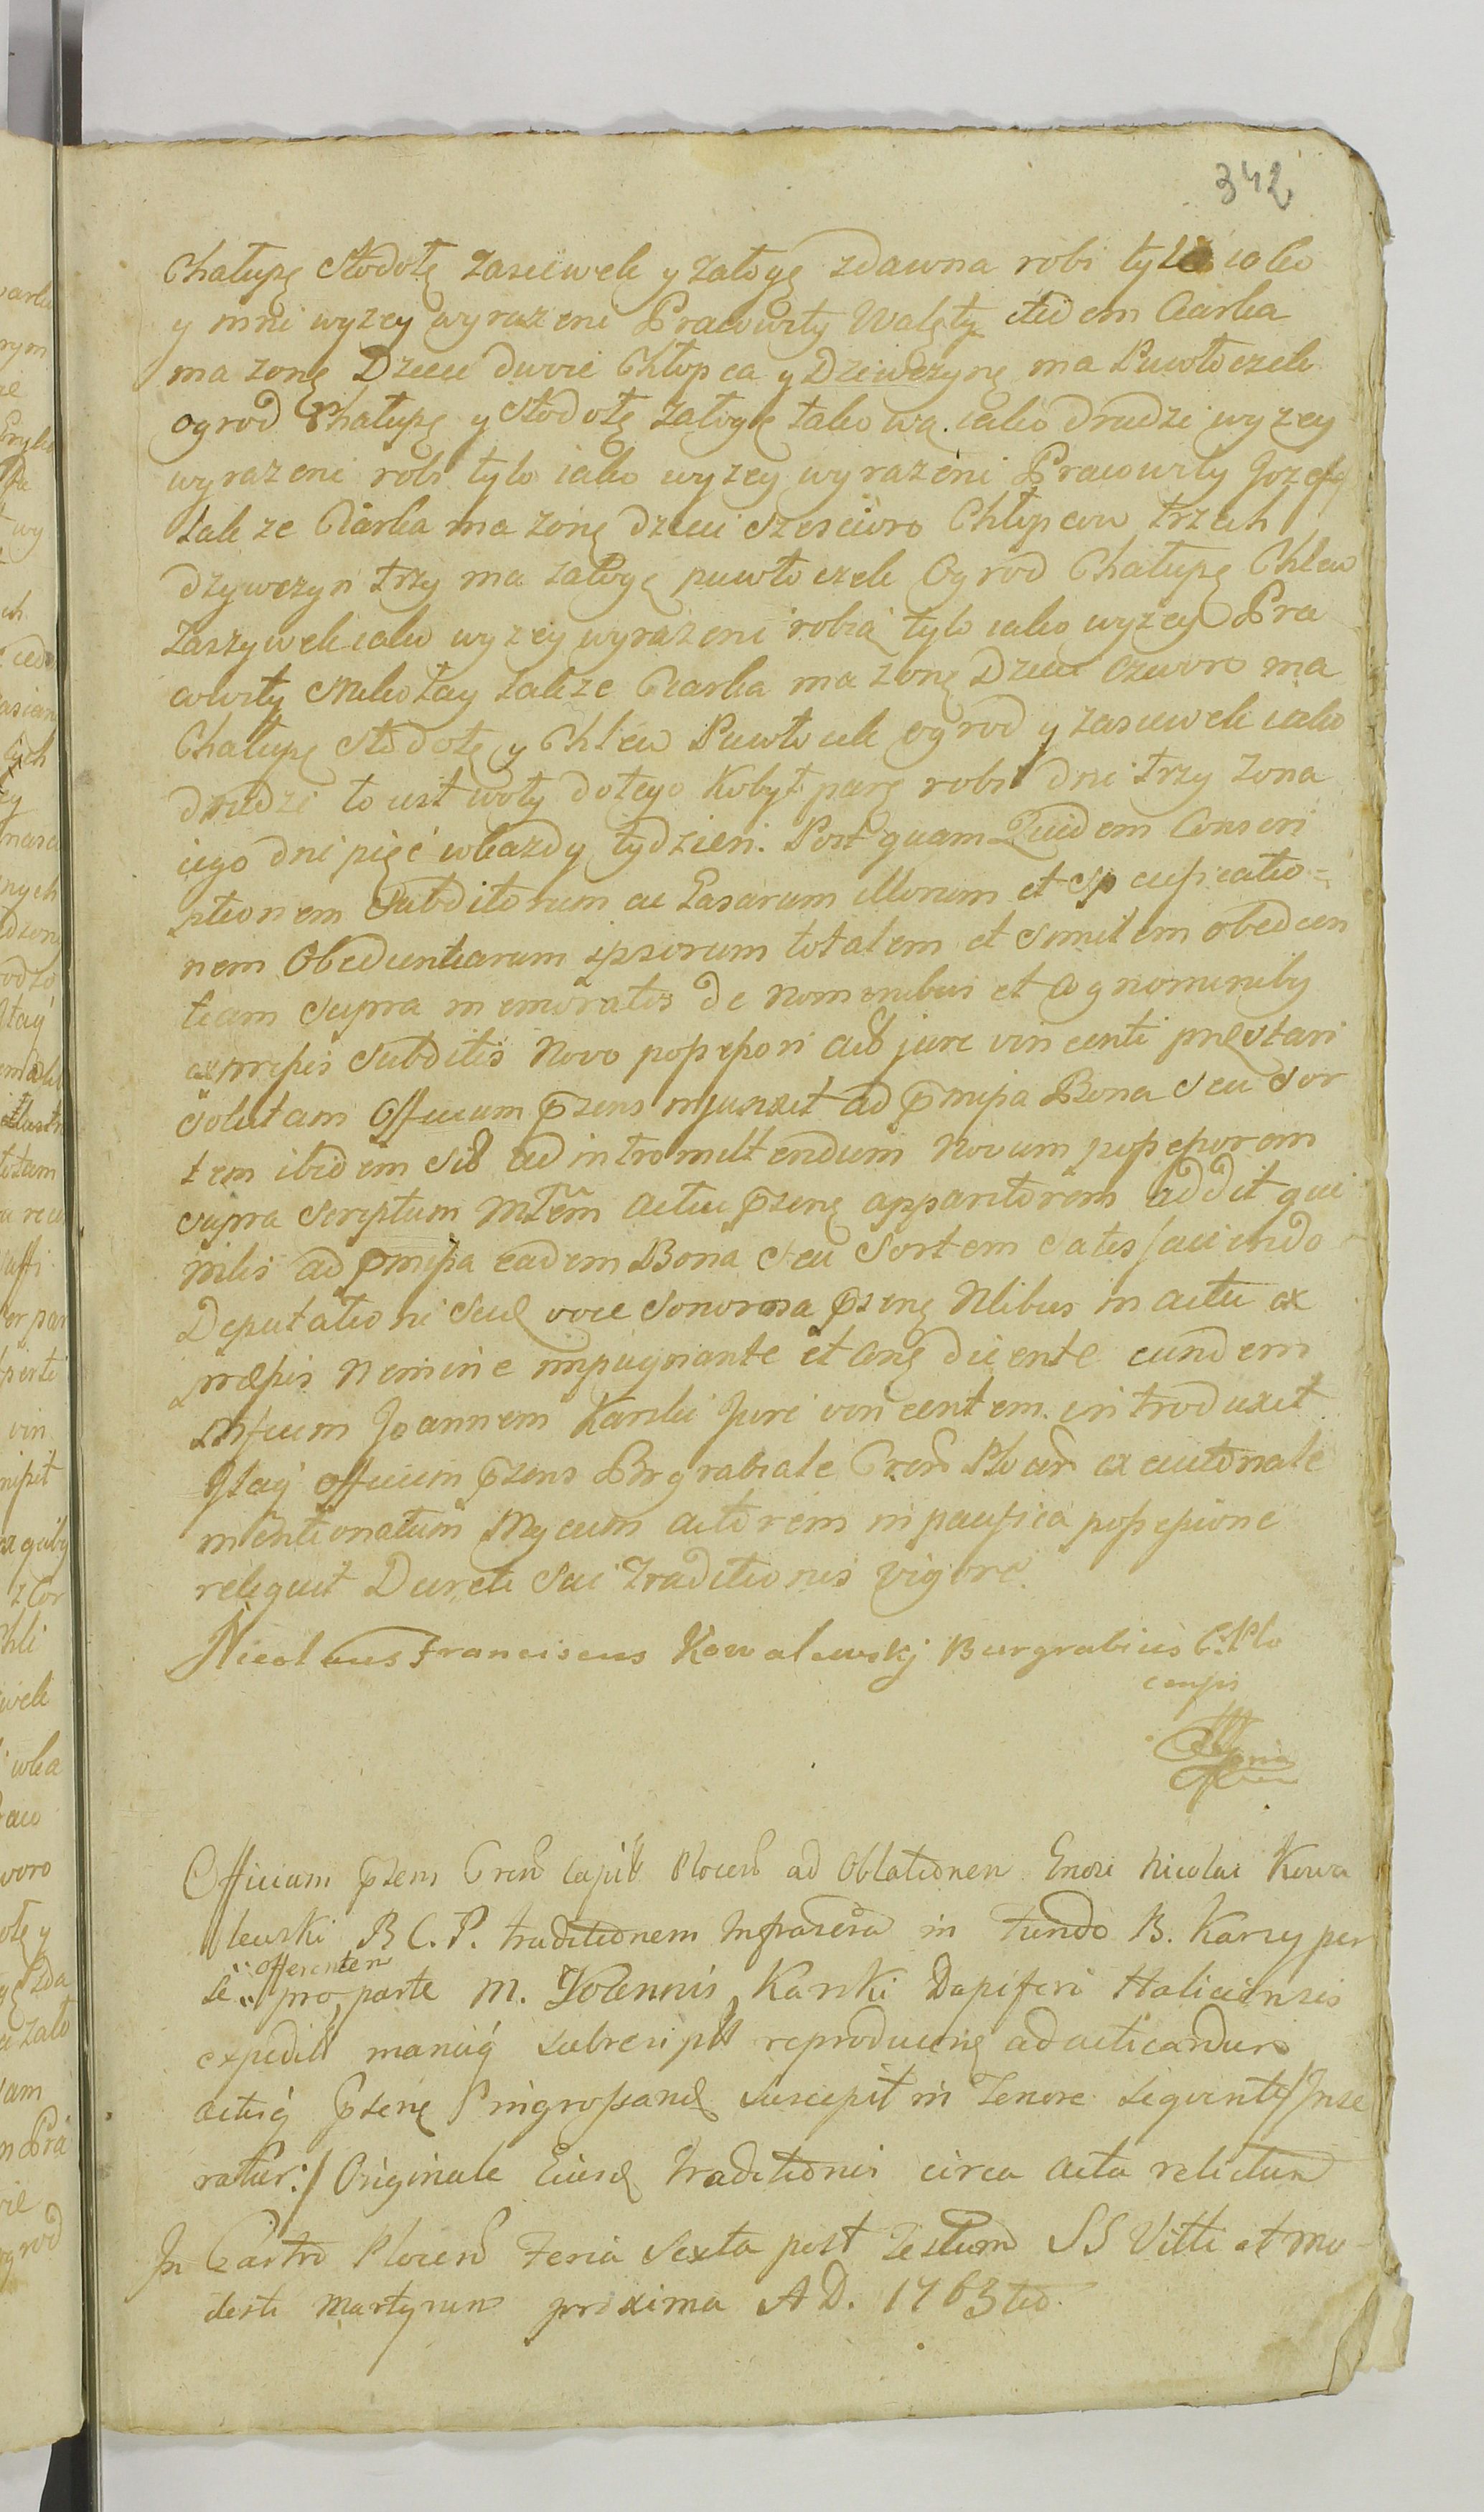 342
Chałupę Stodołę zasiewek y załogę zdawna robi tylo iako
y inni wyzey wyrazeni Pracowity Walęty itidem Ciarka
ma zonę Dzieci dwoie Chłopca y Dziewczynę ma Puwłoczek
ogrod Chałupę y Stodołę załogę takową iako drudzi wyzey
wyrazeni robi tylo iako wyzey wyrazeni Pracowity Jozef
takze Ciarka ma zonę dzieci szescioro Chłopcow trzech
dzywczyn trzy ma załogę puwłoczek Ogrod Chałupę Chlew
zaszywek iako wyzey wyrazeni robią tylo iako wyzey Pra
cowity Mikołay takze Ciarka ma zonę Dzieci czworo ma
Chałupę Stodołę y Chlew Puwłocek ogrod y zasiewek iako
drudzi to iest woły dotego Kobył parę robi dni trzy zona
iego dni pięć wkazdy tydzien. Post quam Quidem Conscri
ptionem Subditorum ac Casarum illorum et specificatio=
nem Obedientiarum ipsorum totalem et similem obedien
tiam supra memoratis de nominibus et cognominiby
expressis Subditis Novo possessori aut jure vincenti præstari
solutam Officium pñsens injunxit ad pmissa Bona Seu Sor
tem ibidem sit ad intromittendum Novum possessorem
supra Scriptum Mlem actu pñse apparitorem addit qui
Mlis ad pmissa eadem Bona Seu Sortem satisfaciendo
Deputationi Suæ voce Sonorosa pñse Nlibus in actu ex
pressis Nemine impugnante et Cone dicente eundem
Mficum Joannem Karski Juri vincentem introduxit
Itaq officium pñsens Brgrabiale Cren Plocen executionale
mentionatum Mgcum actorem in pacifica possessione
reliquit Decreti Sui Traditionis Vigore.
Nicolaus Franciscus Kowalewskj Burgrabius C. Plo
censis
Officium pñsens Cren Capit Plocen ad Oblationen Gnosi Nicolai Kowa
lewski B C. P. traditionem Infrascrã in Fundo B. Karsy per
offerenten
se pro parte M. Joannis Karski Dapiferi Haliciensis
expedit manuq subscript reproducine ad acticandum
actisq pñse Pingrossand suscepit in Tenore sequenti /Inse
ratur:/ Originale Eiusd traditionis circa acta relictum
In Castro Plocen Feria Sexta post Festum SS Vitti et Mo-
desti Martyrum proxima A D. 1763tio.